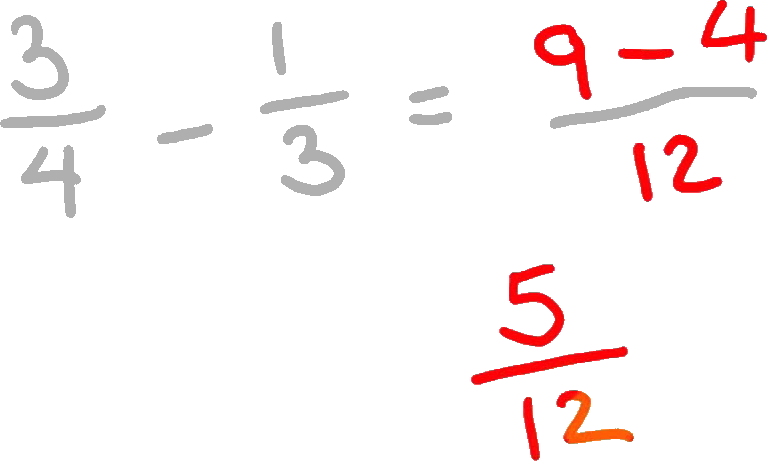 3/4 - 1/3 = 9-4/12
5/12